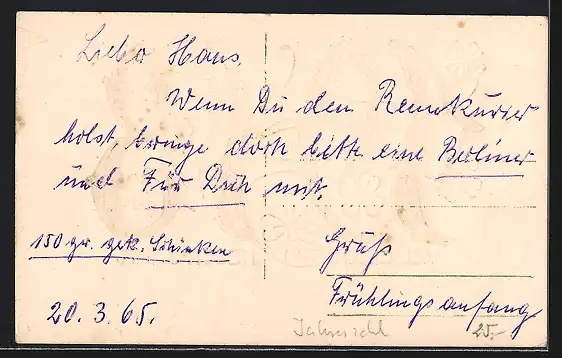 Liebe Hans.
Wenn Du den Rennkurier
holst, bringe doch bitte eine Berliner
und Für Dich mit.
150 gr. gek. Schinken
Gruß
Frühlingsanfang
20. 3. 65.
25,-